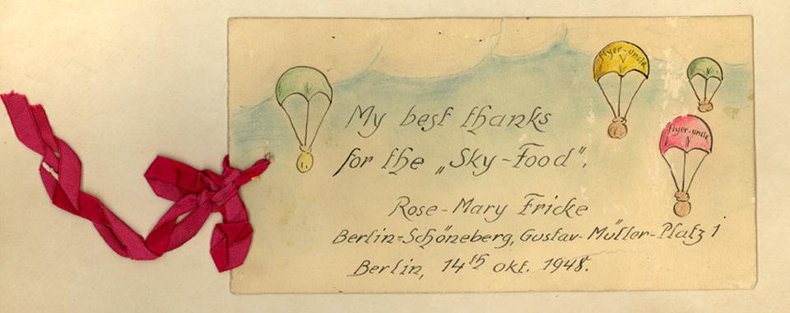 Flyer-uncle
V
Flyer-uncle
My best thanks
for the „Sky-Food".
Rose-Mary Fricke
Berlin-Schöneberg, Gustav-Müller-Platz 1
Berlin, 14th okt. 1948.